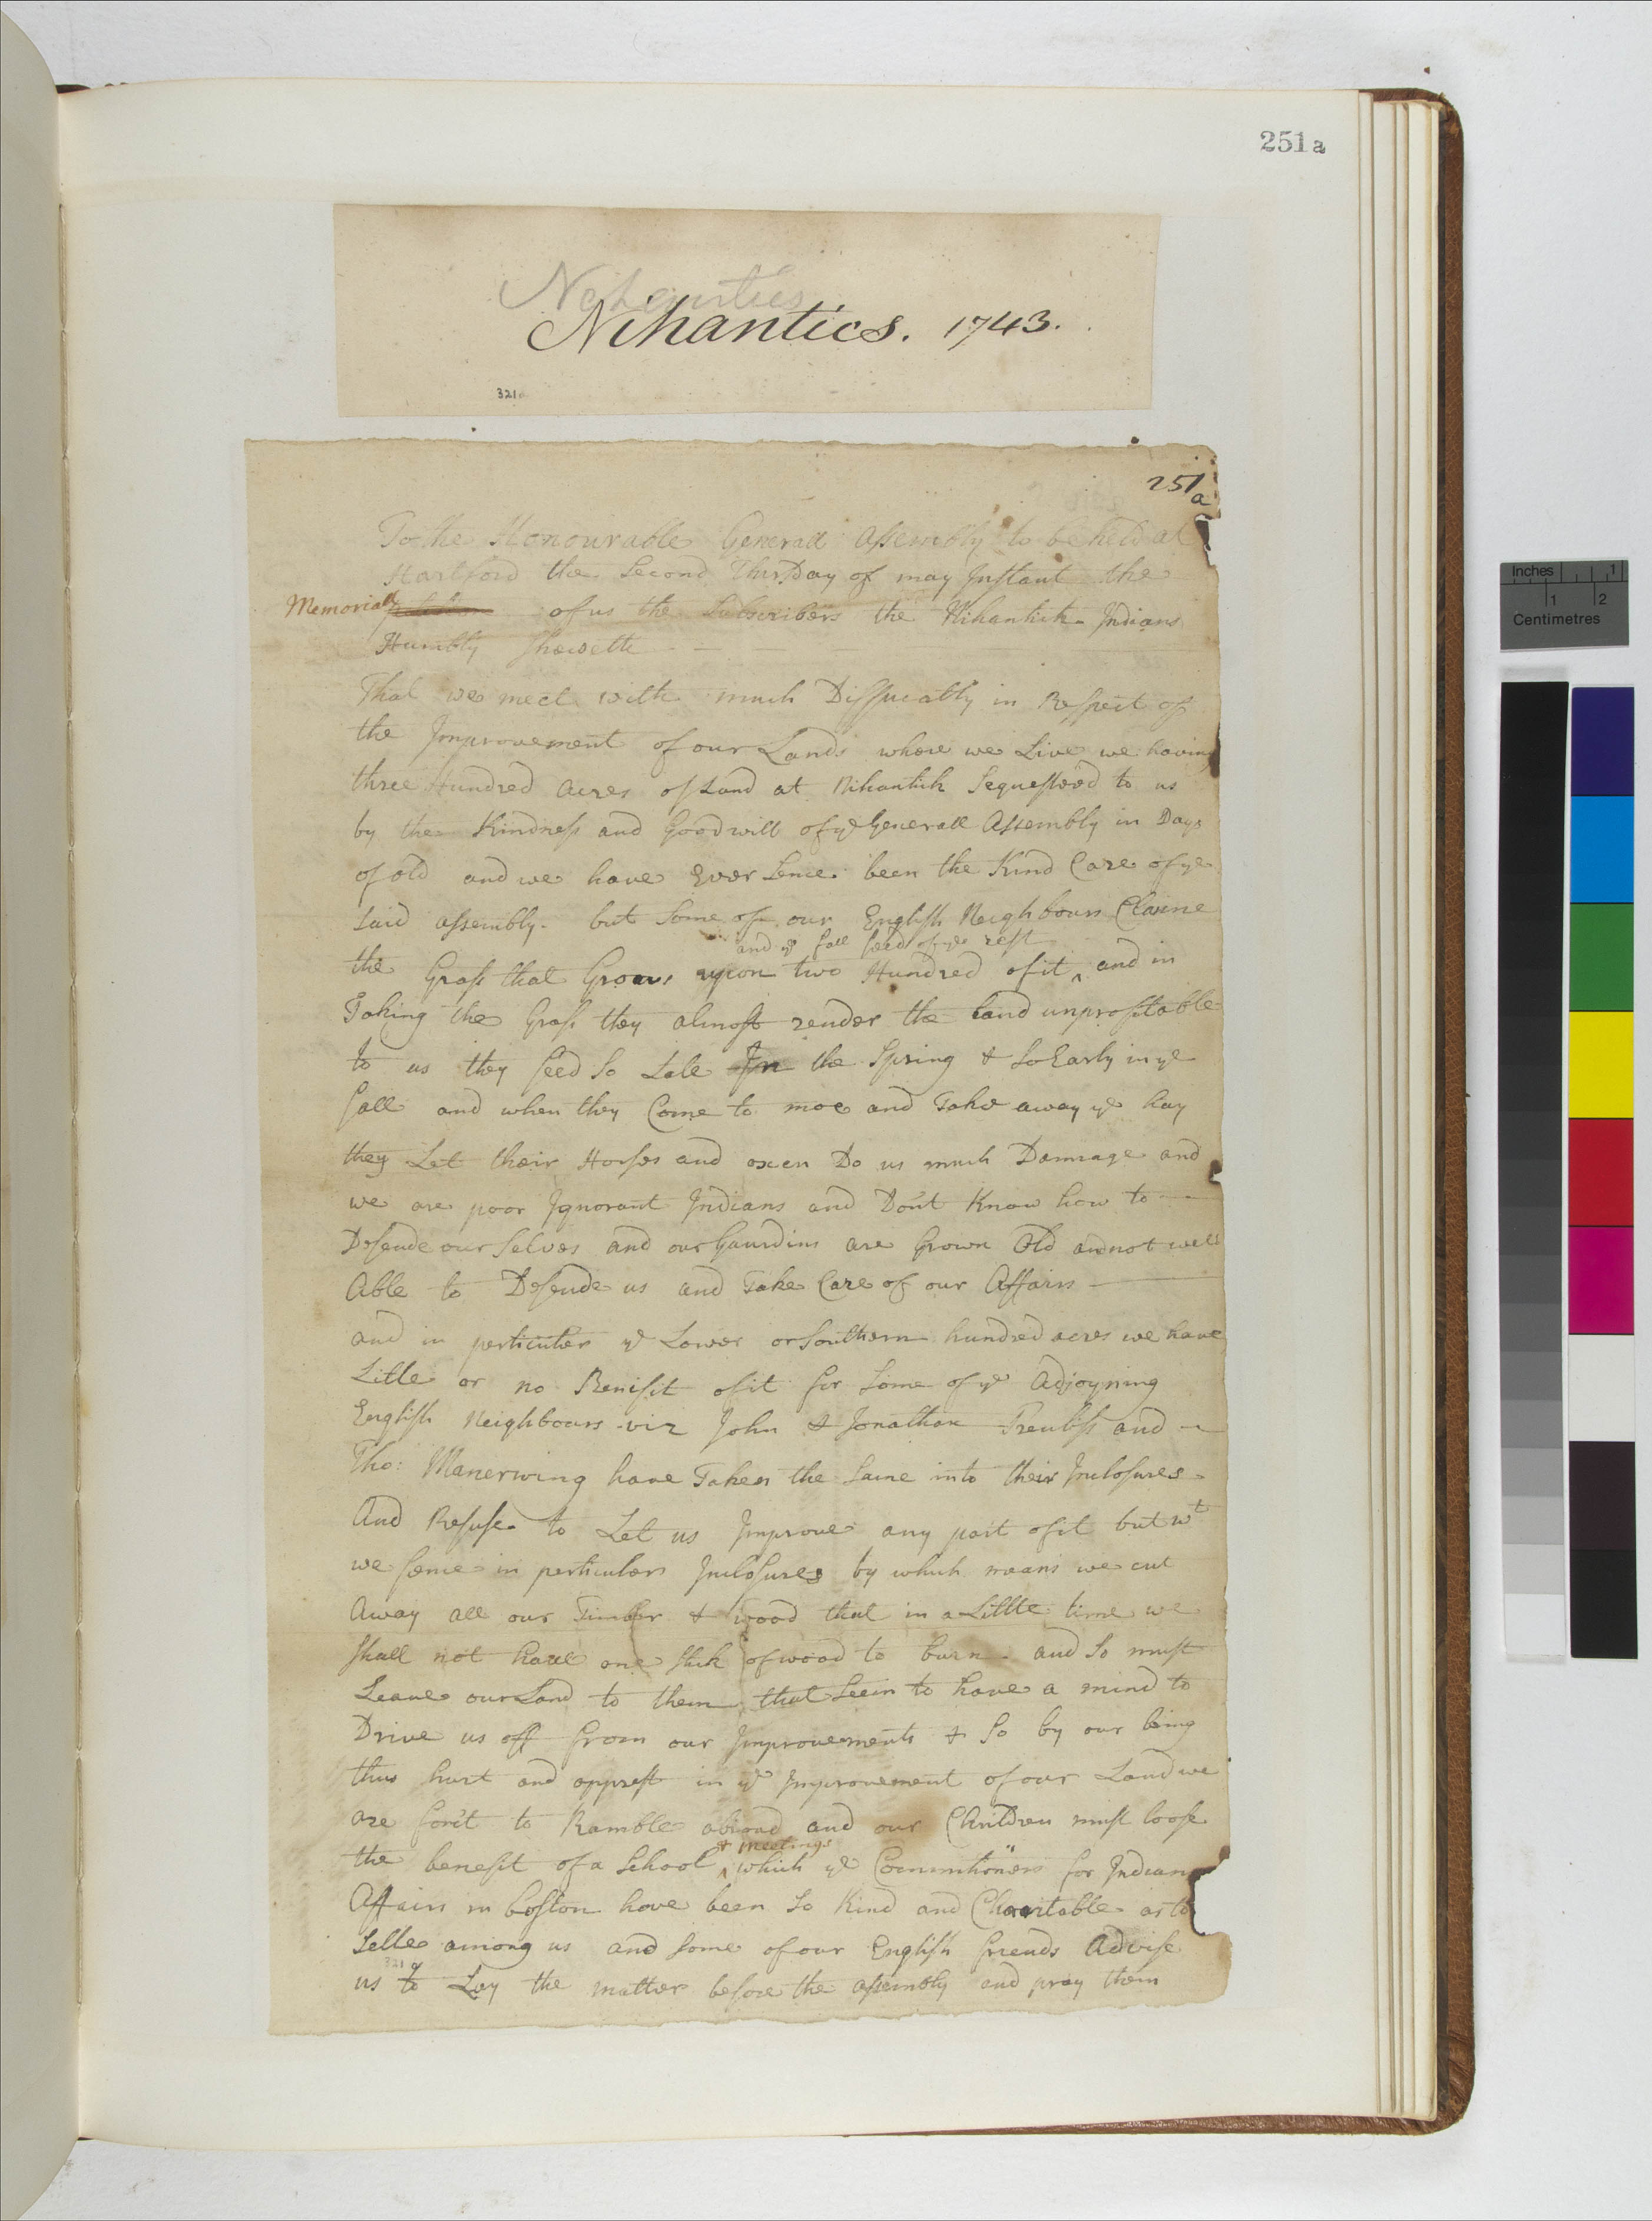 251a
Nehantics
Nihantics. 1743.
321a
251
a
To the Honourable Generall Assembly to be held at
Hartford the Second ThursDay of may Instant the
Memoriall petition of us the Subscribers the Nihantick Indians
Humbly Sheweth
That we meet with much Diffucatly in Respect of
the Improvement of our Lands where we Live we having
three Hundred acres of Land at Nihantick Sequestred to us
by the Kindness and Good will of ye Generall Assembly in Days
of old and we have Ever Sence been the Kind Care of ye
said assembly. but Some of our English Neighbours Claime
and ye fall feed of ye rest
the Grass that Grows upon two Hundred of it ^ and in
Taking the Grass they almost render the land unprofitable
to us they feed So Late In the Spring & So Early in ye
fall and when they Come to moe and Take away ye hay
they Let their Horses and oxen Do us much Damage and
we are poor Ignorant Indians and Don't Know how to
Defende our Selves and our Gaurdins are Grown Old and not well
Able to Defende us and Take Care of our Affairs
and in perticuler ye Lower or Southern hundred acres we have
Litle or no Benifit of it for Some of ye Adjoyning
English Neighbours viz John & Jonathan Prentiss and
Tho: Manerwing have Taken the Same into their Inclosures
And Refuse to Let us Improve any part of it but wt
we fence in perticulars Inclosures by which means we cut
Away all our Timber & wood that in a Little time we
Shall not have one stick of wood to burn and So must
Leave our Land to them that Seem to have a mind to
Drive us off from our Improvements & So by our being
thus hurt and opprest in ye Improvement of our Land we
are forc't to Ramble abroad and our Children must loose
& meetings
the benefit of a School ^ which ye Commitioners for Indian
Affairs in boston have been So Kind and Charitable as to
Settle among us and some of our English friends Advise
321a
us to Lay the matter before the assembly and pray them
Inches 1
1 2
Centimetres